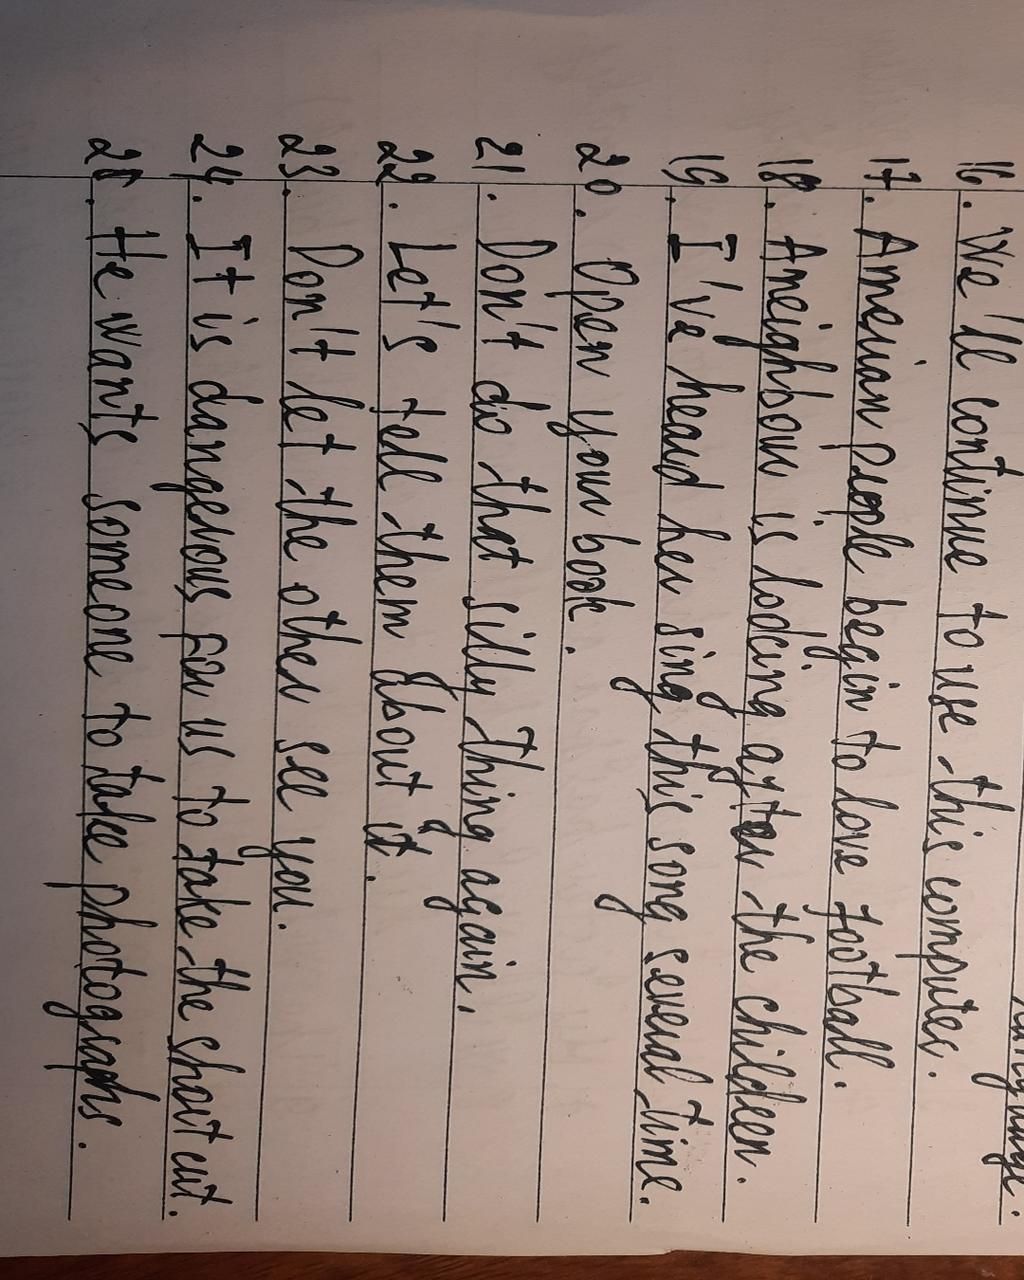 16. We'll continue to use this computer.
17. American people begin to love football.
18. A neighbour is looking after the childeen.
19. I've heard her sing this song several time.
20. Open your book.
21. Don't do that silly thing again.
22. Let's tell them about it.
23. Don't let the other see you.
24. It is dangerous for us to take the short cut.
25. He wants someone to take photographs.